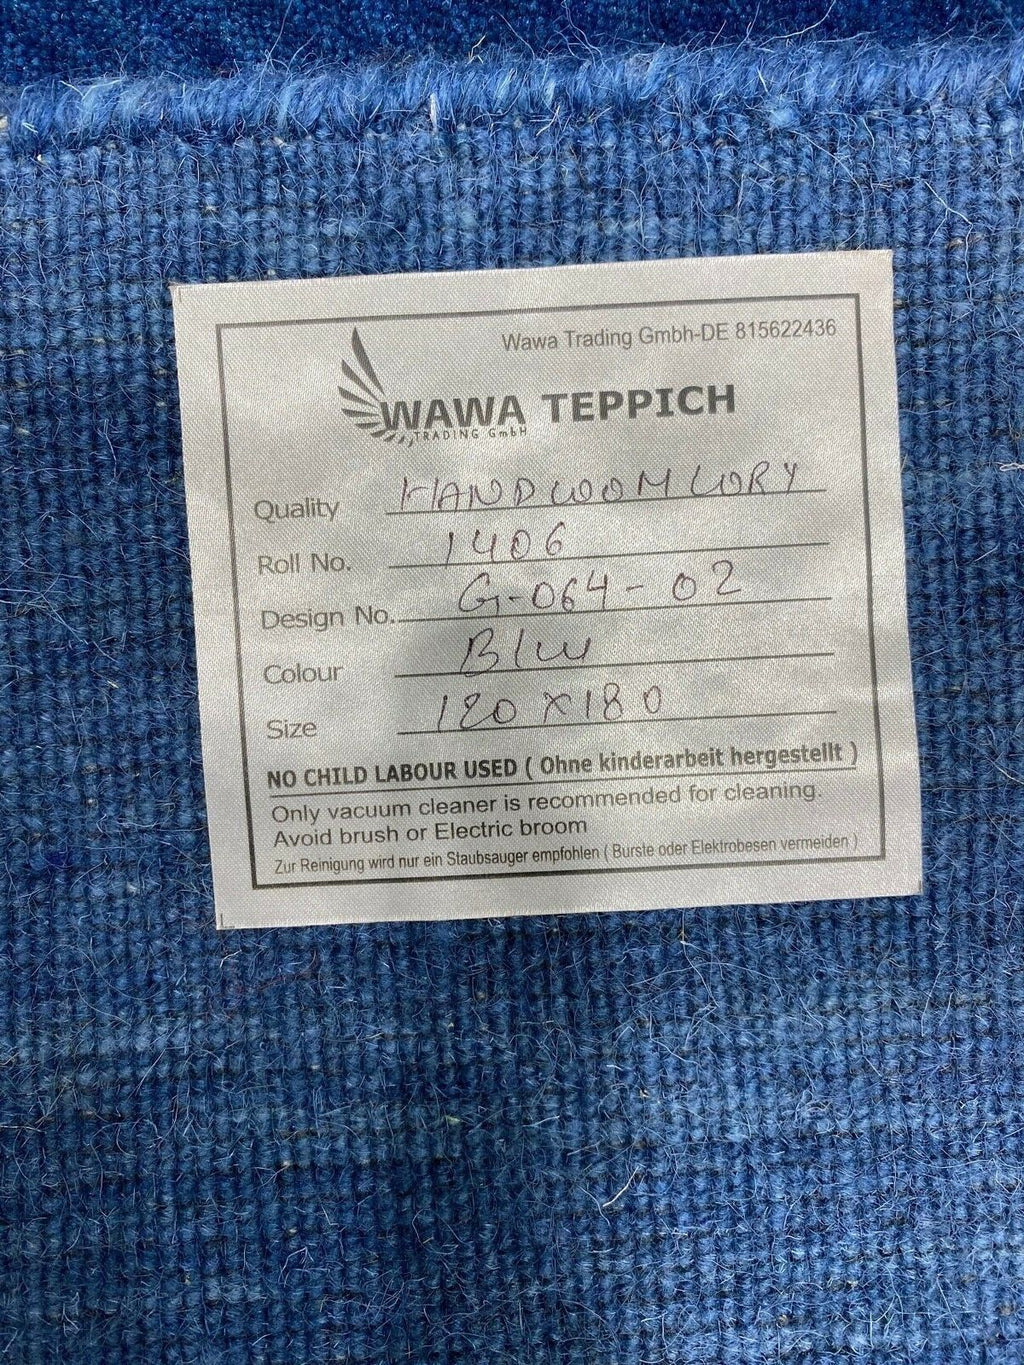 Wawa Trading Gmbh-DE 815622436
WAWA TEPPICH
TRADING GmbH
Quality HANDLOOM LORY
Roll No. 1406
Design No. G-064-02
Colour Blue
Size 120 x 180
NO CHILD LABOUR USED ( Ohne kinderarbeit hergestellt )
Only vacuum cleaner is recommended for cleaning.
Avoid brush or Electric broom
Zur Reinigung wird nur ein Staubsauger empfohlen ( Burste oder Elektrobesen vermeiden )